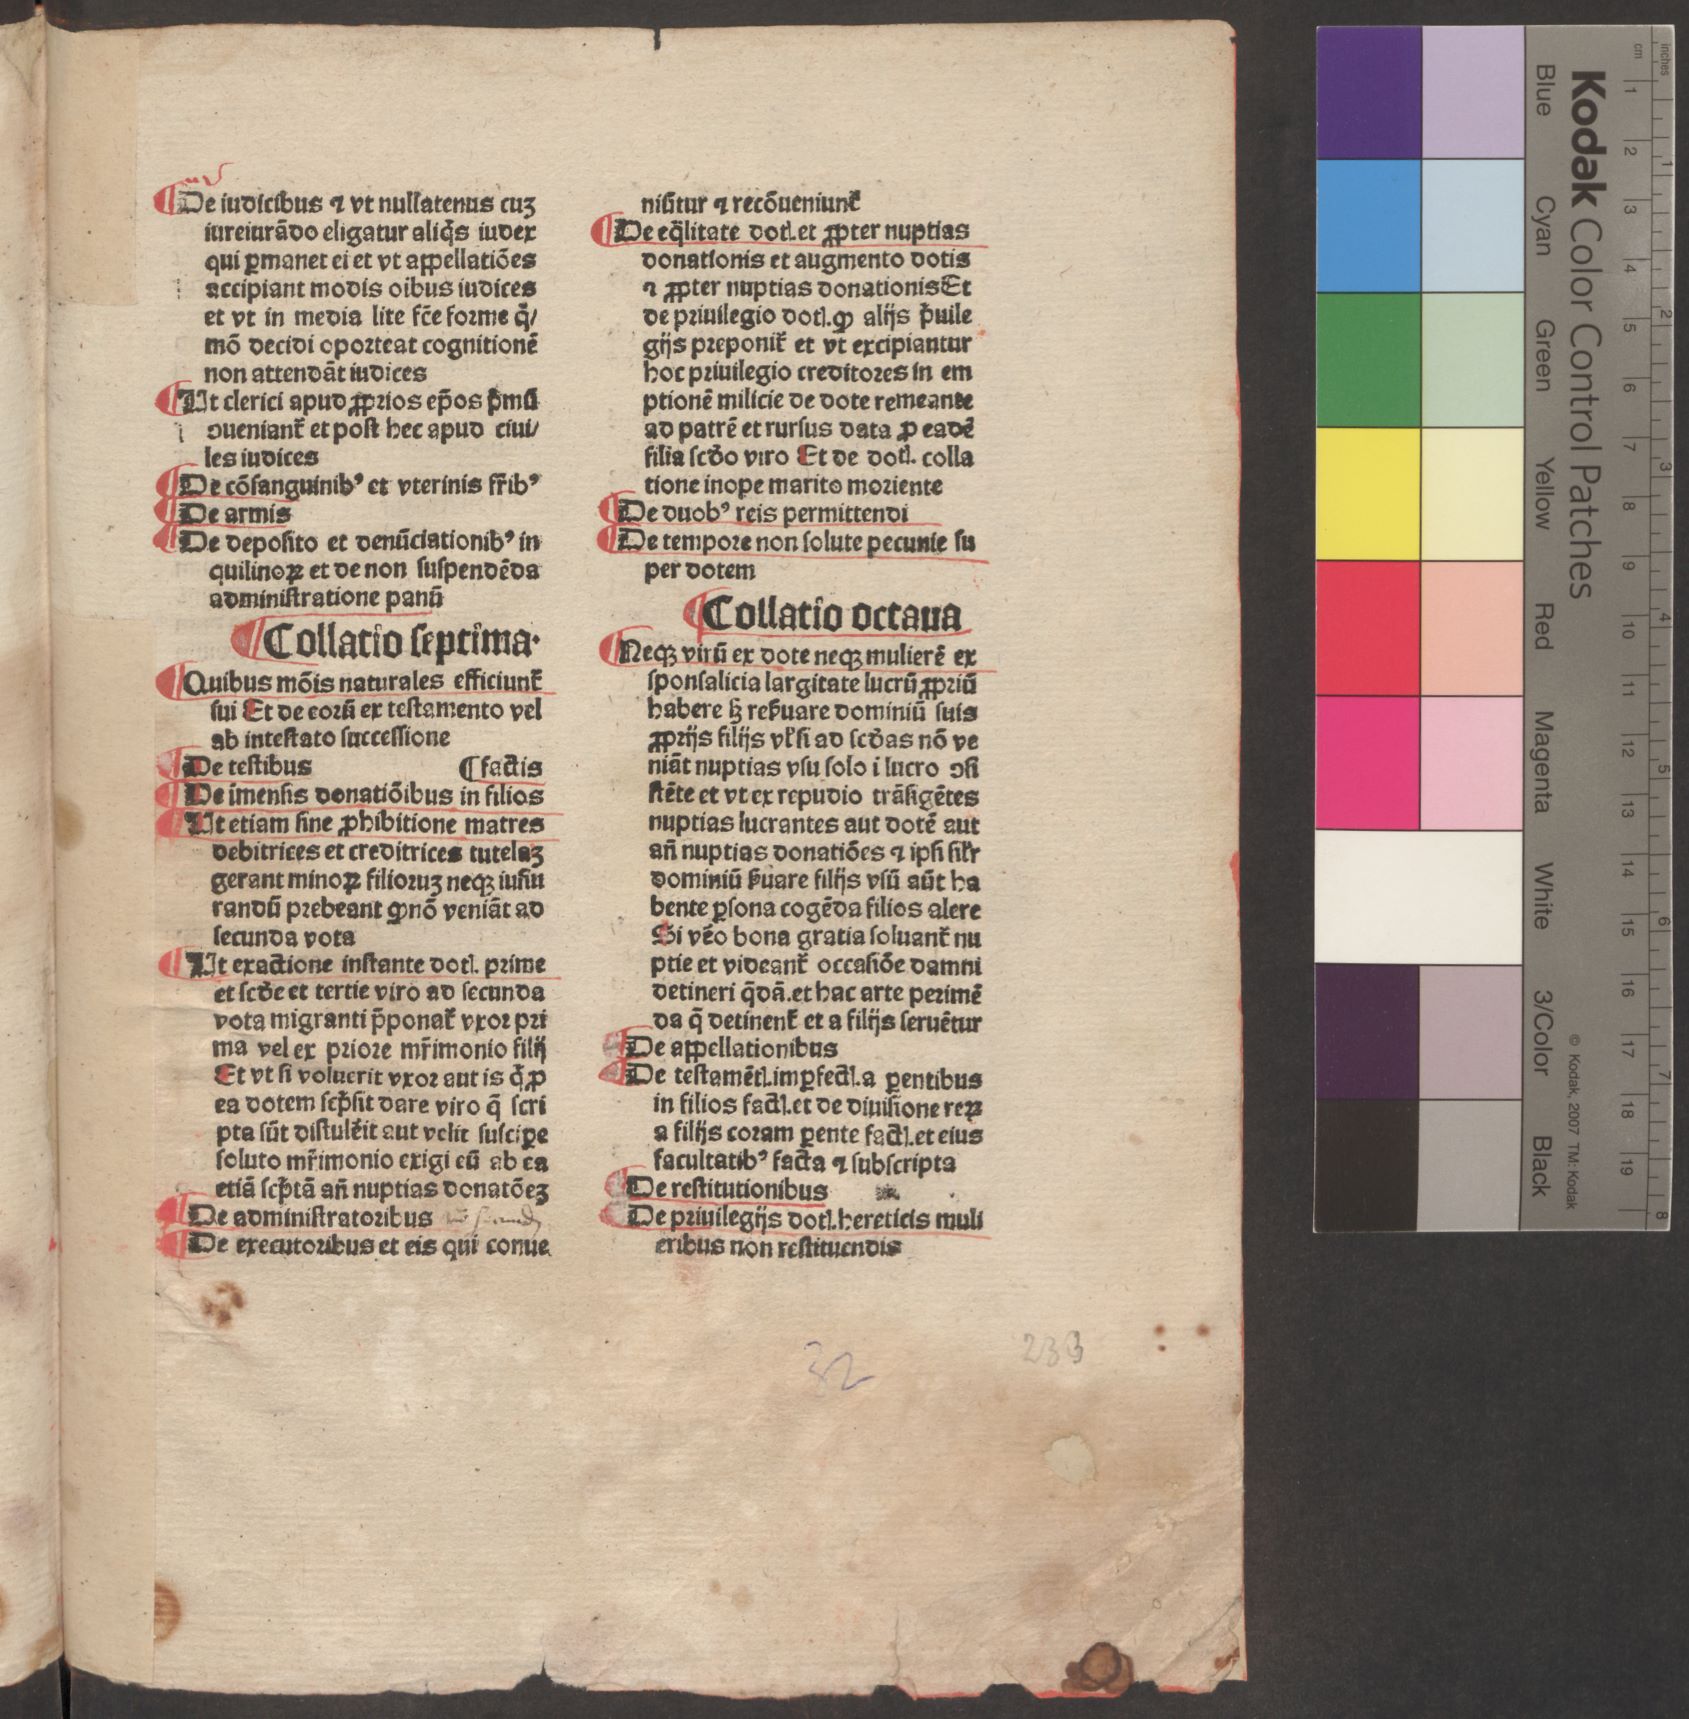 De iudicibus ⁊ vt nullatenus cuȝ
iureiurādo eligatur aliq̄s iudex
qui ꝑmanet ei et vt appellatiōes
accipiant modis oibus iudices
et vt in media lite fc̄e forme q̄/
mō decidi oporteat cognitionē
non attendāt iudices
Ut clerici apud ꝓprios ep̄os p̄mū
ↄueniant᷑ et post hec apud ciui/
les iudices
De cōsanguinibꝰ et vterinis fr̄ibꝰ
De armis
De deposito et denūciationibꝰ in
quilinoꝝ et de non suspendēda
administratione panū
Collatio septima·
Quibus mōis naturales efficiunt᷑
sui Et de eorū ex testamento vel
ab intestato successione
De testibus ¶factis
De imensis donatiōibus in filios
Ut etiam sine ꝓhibitione matres
debitrices et creditrices tutelaȝ
gerant minoꝝ filioruȝ neqȝ iusiu
randū prebeant ꝙ nō veniāt ad
secunda vota
Ut exactione instante dotꝭ. prime
et scd̄e et tertie viro ad secunda
vota migranti p̄ponat᷑ vxor pri
ma vel ex priore mr̄imonio filij
Et vt si voluerit vxor aut is q̄ ꝓ
ea dotem scp̄sit dare viro q̄ scri
pta sūt distulēit aut velit suscipe
soluto mr̄imonio exigi eū ab ea
etiā scp̄tā an̄ nuptias donatōeȝ
De administratoribus
De executoribus et eis qui conue
niūtur ⁊ recōueniunt᷑
De eq̄litate dotꝭ. et ꝓpter nuptias
donationis et augmento dotis
⁊ ꝓpter nuptias donationis Et
de priuilegio dotꝭ. ꝙ alijs p̄uile
gijs preponit᷑ et vt excipiantur
hoc priuilegio creditores in em
ptionē milicie de dote remeante
ad patrē et rursus data ꝓ eadē
filia scd̄o viro Et de dotꝭ. colla
tione inope marito moriente
De duobꝰ reis permittendi
De tempore non solute pecunie su
per dotem
Collatio octaua
Neqȝ virū ex dote neqȝ mulierē ex
sponsalicia largitate lucrū ꝓpriū
habere sȝ res̄uare dominiū suis
ꝓprijs filijs vl̄si ad scd̄as nō ve
niāt nuptias vsu solo i lucro ↄsi
stēte et vt ex repudio trāsigētes
nuptias lucrantes aut dotē aut
an̄ nuptias donatiōes ⁊ ipsi sil̄r
dominiū s̄uare filijs vsū aūt ha
bente ꝑsona cogēda filios alere
Si vēo bona gratia soluant᷑ nu
ptie et videant᷑ occasiōe damni
detineri q̄dā. et hac arte perimē
da q̄ detinent᷑ et a filijs seruētur
De appellationibus
De testamētꝭ. imꝑfectꝭ. a ꝑentibus
in filios factꝭ. et de diuisione reꝝ
a filijs coram ꝑente factꝭ. et eius
facultatibꝰ facta ⁊ subscripta
De restitutionibus
De priuilegijs dotꝭ. hereticis muli
eribus non restituendis
32
233
Kodak Color Control Patches
Blue Cyan Green Yellow Red Magenta White 3/Color Black
© Kodak, 2007 TM: Kodak
inches
cm
1 2 3 4 5 6 7 8 9 10 11 12 13 14 15 16 17 18 19
1 2 3 4 5 6 7 8